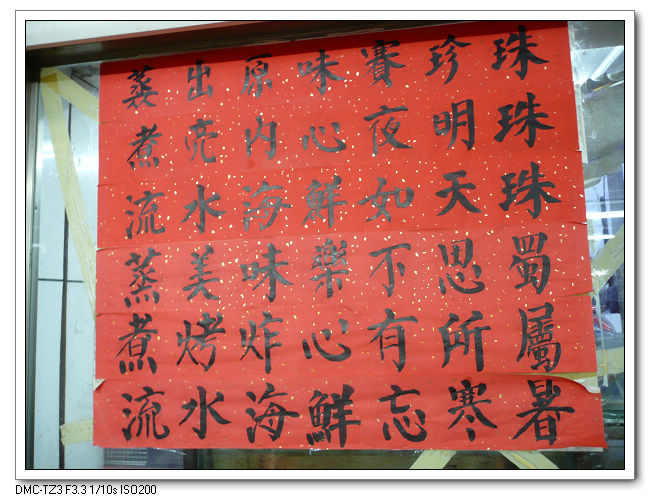 珠珠珠蜀屬暑
珍明天思所寒
賽夜如不有忘
味心鮮樂心鮮
原內海味炸海
出亮水美烤水
蒸煮流蒸煮流
DMC-TZ3 F3.3 1/10s ISO200